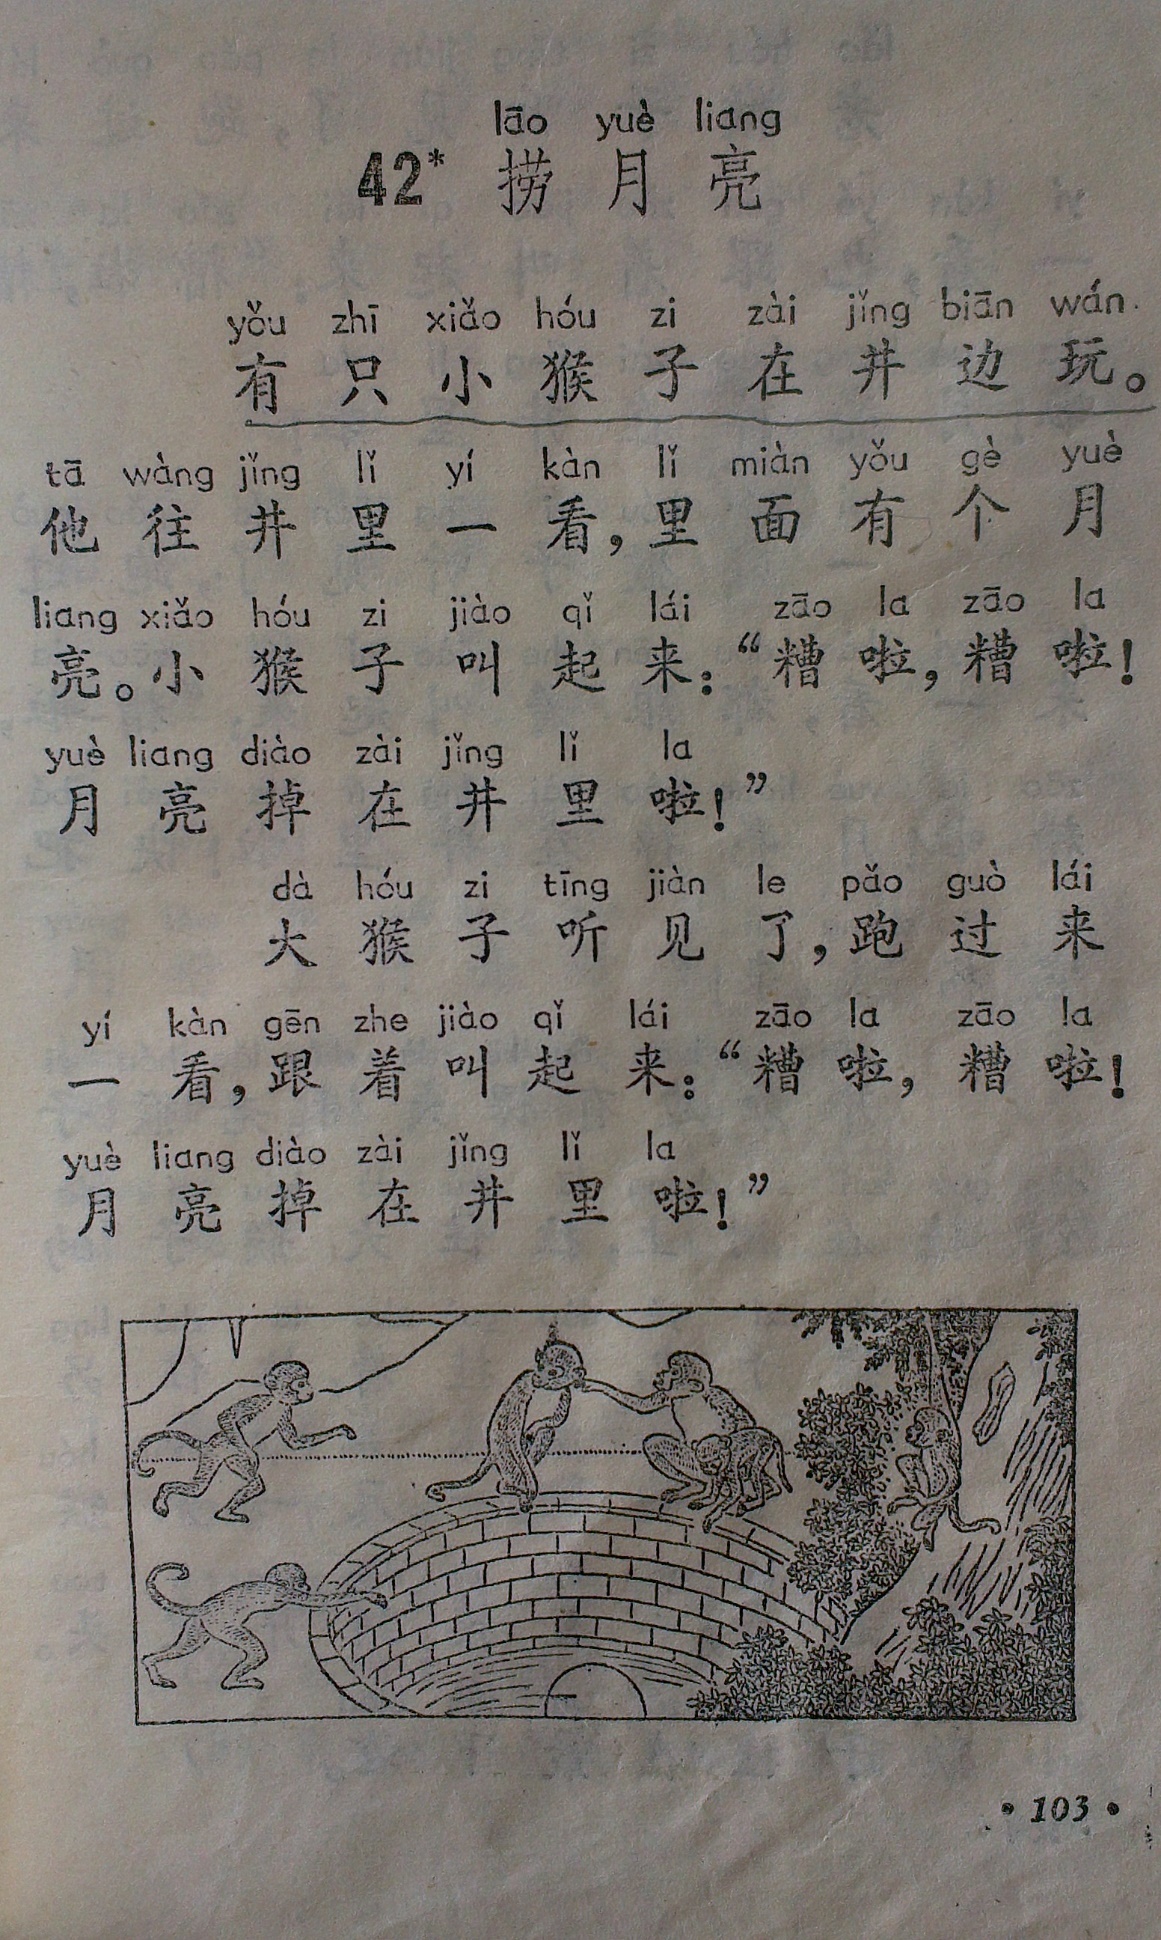 lāo yuè liang
42* 捞月亮
yǒu zhī xiǎo hóu zi zài jǐng biān wán
有只小猴子在井边玩。
tā wàng jǐng lǐ yí kàn lǐ miàn yǒu gè yuè
他往井里一看,里面有个月
liang xiǎo hóu zi jiào qǐ lái zāo la zāo la
亮。小猴子叫起来:“糟啦,糟啦!
yuè liang diào zài jǐng lǐ la
月亮掉在井里啦!”
dà hóu zi tīng jiàn le pǎo guò lái
大猴子听见了,跑过来
yí kàn gēn zhe jiào qǐ lái zāo la zāo la
一看,跟着叫起来:“糟啦,糟啦!
yuè liang diào zài jǐng lǐ la
月亮掉在井里啦!”
• 103 •